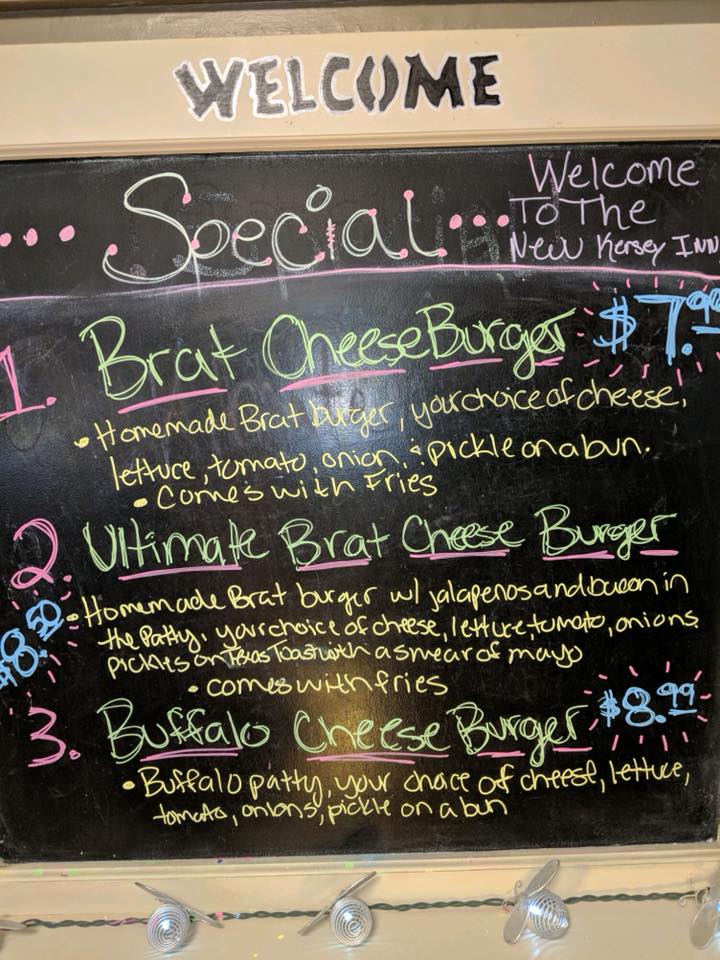 WELCOME
Welcome
To The
New Kersey Inn
... Special ...
1. Brat Cheese Burger $7.99
• Homemade Brat burger, your choice of cheese,
lettuce, tomato, onion, & pickle on a bun.
• Comes with Fries
2. Ultimate Brat Cheese Burger
$8.50
• Homemade Brat burger w/ jalapenos and bacon in
the patty, your choice of cheese, lettuce, tomato, onions
pickles on Texas Toast with a smear of mayo
• comes with fries
3. Buffalo Cheese Burger $8.99
• Buffalo patty, your choice of cheese, lettuce,
tomato, onions, pickle on a bun